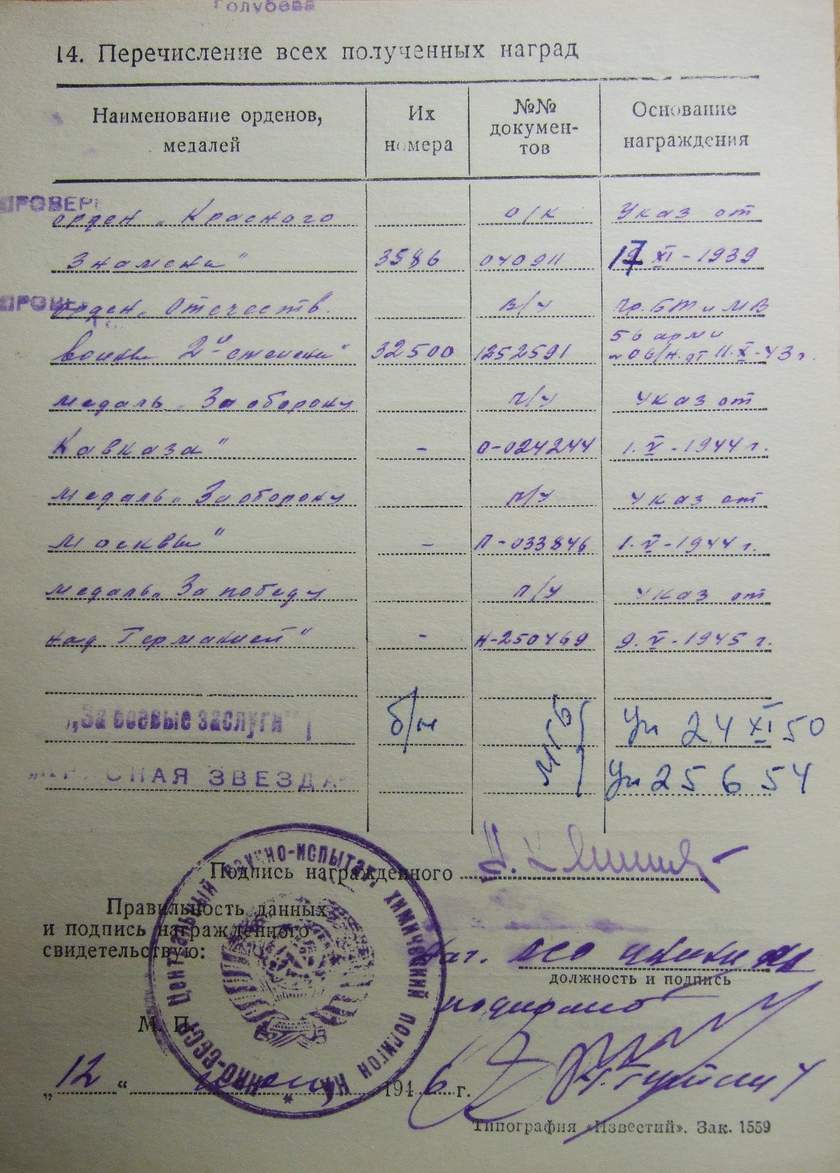 Голубева
14. Перечисление всех полученных наград
Наименование орденов, медалей | Их номера | №№ документов | Основание награждения
ПРОВЕР
орден „Красного | о/к | Указ от
Знамени" | 3586 | 040911 | 17 XI - 1939
ПРОВЕР
орден „Отечеств. | в/ч | Пр. БТ и МВ
войны 2й степени" | 32500 | 1252591 | 56 арми № 06/н. от 11.X-43 г.
медаль „За оборону | п/у | Указ от
Кавказа" | - | О-024244 | 1.V-1944 г.
медаль „За оборону | п/у | Указ от
Москвы" | - | Л-033846 | 1.V-1944 г.
медаль „За победу | п/у | Указ от
над Германией" | - | Н-250469 | 9.V-1945 г.
„За боевые заслуги" | б/н | МГБ | Ук 24 XI 50
„КРАСНАЯ ЗВЕЗДА" | Ук 25 6 54
Подпись награжденного
Правильность данных
и подпись награжденного
свидетельствую:
должность и подпись
М. П.
Центральный научно-испытат. химический полигон
„12" июня 1946 г.
Типография «Известий». Зак. 1559